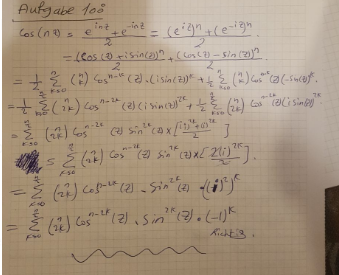 Aufgabe 100
cos(nz) = e^{inz} + e^{-inz} / 2 = (e^{iz})^n + (e^{-iz})^n / 2
= (cos(z) + i sin(z))^n + (cos(z) - sin(z))^n / 2
= 1/2 Σ_{k=0}^{n} (n k) cos^{n-k}(z) · (i sin(z))^k + 1/2 Σ_{k=0}^{n} (n k) cos^{n-k}(z) (-i sin(z))^k
= 1/2 Σ_{k=0} (n 2k) cos^{n-2k}(z) (i sin(z))^{2k} + 1/2 Σ_{k=0} (n 2k) cos^{n-2k}(z) (i sin(z))^{2k}
= Σ_{k=0} (n 2k) cos^{n-2k}(z) sin^{2k}(z) ×
= Σ_{k=0} (n 2k) cos^{n-2k}(z) sin^{2k}(z) × [2(i)^{2k} / 2]
= Σ_{k=0} (n 2k) cos^{n-2k}(z) · sin^{2k}(z) · (i²)^k
= Σ_{k=0} (n 2k) cos^{n-2k}(z) · sin^{2k}(z) · (-1)^k